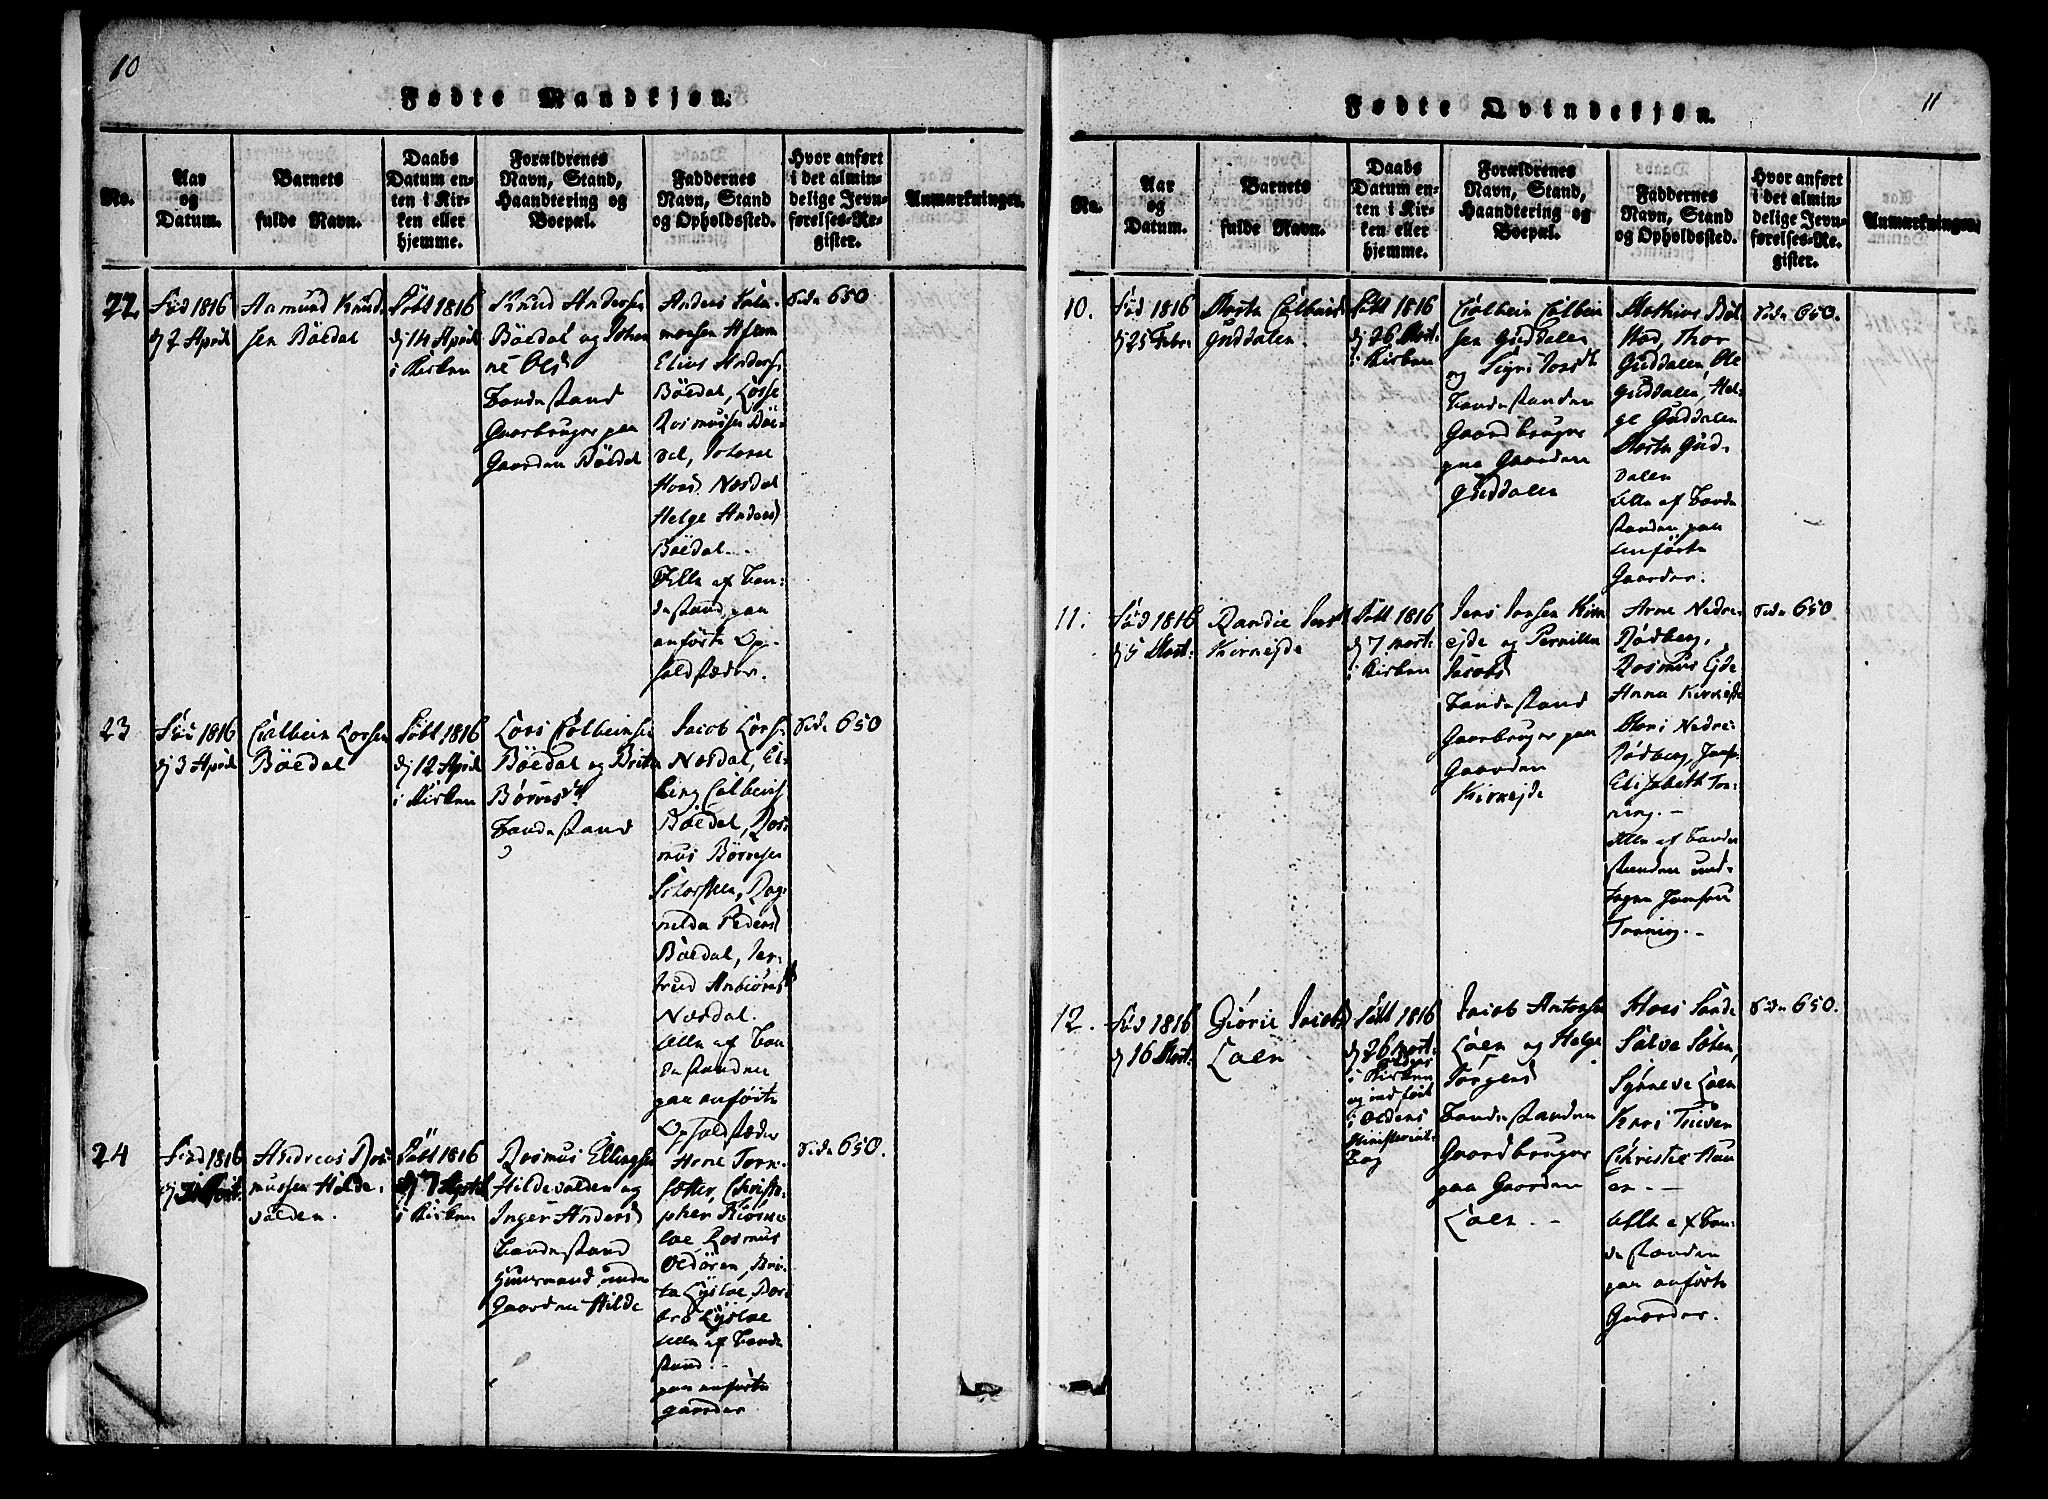 10
Fødte Mandkjøn.
No.
Aar
og
Datum.
Barnets
fulde Navn.
Daabs
Datum en-
ten i Kir-
ken eller
hjemme.
Forældrenes
Navn, Stand,
Haandtering og
Boepæl.
Faddernes
Navn, Stand
og Opholdssted.
Hvor anført
i det almin-
delige Jevn-
førelses-Re-
gister.
Anmærkninger.
22.
Fød 1816
d 2 April
Aamund Knud
sen Böedal
Döbt 1816
d 14 April
i Kirken
Knud Andersen
Böedal og Johan
ne Olsd
Bondestand
Gaardbruger paa
Gaarden Böedal
Anders
Elias Anders.
Böedal, Lasse
Rasmussen Böe-
dal, Johanne
Næsdal
Helge Andersd
Böedal.
Alle af Bon-
destand paa
anförte Op-
holdstæder.
Side 650
23
Fød 1816
d 3 April
Colbein Larsen
Böedal
Döbt 1816
d 12 April
i Kirken
Lars Colbeinsen
Böedal og Brite
Børresd
Bondestand
Jacob Lars.
Næsdal, El-
ling Colbeins
Böedal, Ras-
mus Børresen
Rag-
nilda Peders
Böedal, Jer-
trud
Næsdal.
Alle af Bon
destanden
paa anförte
Opholdstæder
Side 650
24
Fød 1816
Andreas Ras
mussen Hilde-
valden.
Döbt 1816
d 7 April
i Kirken
Rasmus Ellingsen
Hildevalden og
Inger Andersd
Bondestand
Huusmand under
Gaarden Hilde
Arne
Christo-
pher
Rasmus
Bri-
ta
Alle af Bonde
stand
paa anförte
gaarder
Side 650.
11
Fødte Qvindekjøn.
No.
Aar
og
Datum.
Barnets
fulde Navn.
Daabs
Datum en-
ten i Kir-
ken eller
hjemme.
Forældrenes
Navn, Stand,
Haandtering og
Boepæl.
Faddernes
Navn, Stand
og Opholdssted.
Hvor anført
i det almin-
delige Jevn-
førelses-Re-
gister.
Anmærkninger.
10.
Fød 1816
d 25 Febr.
Marta Colbeinsd
Guddalen.
Döbt 1816
d 26 Mart.
i Kirken
Colbein Colbein
sen Guddalen
og Sigri
Bondestanden
Gaardbruger
paa Gaarden
Guddalen
Mathias Böl
stad, Thor
Guddalen, Ole
Guddalen, Hel-
ge Guddalen
Marta Gud-
dalen
Alle af Bonde
standen paa
anförte
Gaarder.
Side 650.
11.
Fød 1816
d 5 Mart.
Randie Jensd
Kirkejde
Döbt 1816
d 7 Mart.
i Kirken
Jens Jansen Kirk
ejde og Pernilla
Jacobsd
Bondestand
Gaardbruger paa
Gaarden
Kirkejde
Arne Nedre-
Rödberg,
Rasmus Ejde
Anna Kirkejde
Mari Nedre-
Rödberg, Jomfr.
Elisabeth Ton-
ning.
Alle af Bonde
standen und-
tagen Jomfru
Tonning.
Side 650
12.
Fød 1816
d 16 Mart.
Giörie Jacobsd
Loen
Döbt 1816
d 26 Mart.
i Kirken
og indført
i Oldens
Ministerial-
Bog
Jacob Antonsen
Loen og Helge
Bondestanden
Gaardbruger
paa Gaarden
Loen.
Hans Sande
Salve Sæten,
Synneve Loen
Kari
Christie
Alle af Bon-
destanden
paa anförte
Gaarder.
Side 650.